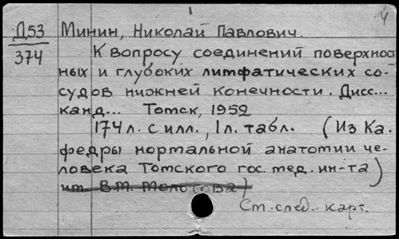 4
Д53 Минин, Николай Павлович.
374 К вопросу соединений поверхност
ных и глубоких лимфатических со-
судов нижней конечности. Дисс...
канд... Томск, 1952
174 л. с илл., 1 л. табл. (Из Ка.
федры нормальной анатомии че-
ловека Томского гос. мед. ин-та)
им. В.М. Молотова)
См. след. карт.